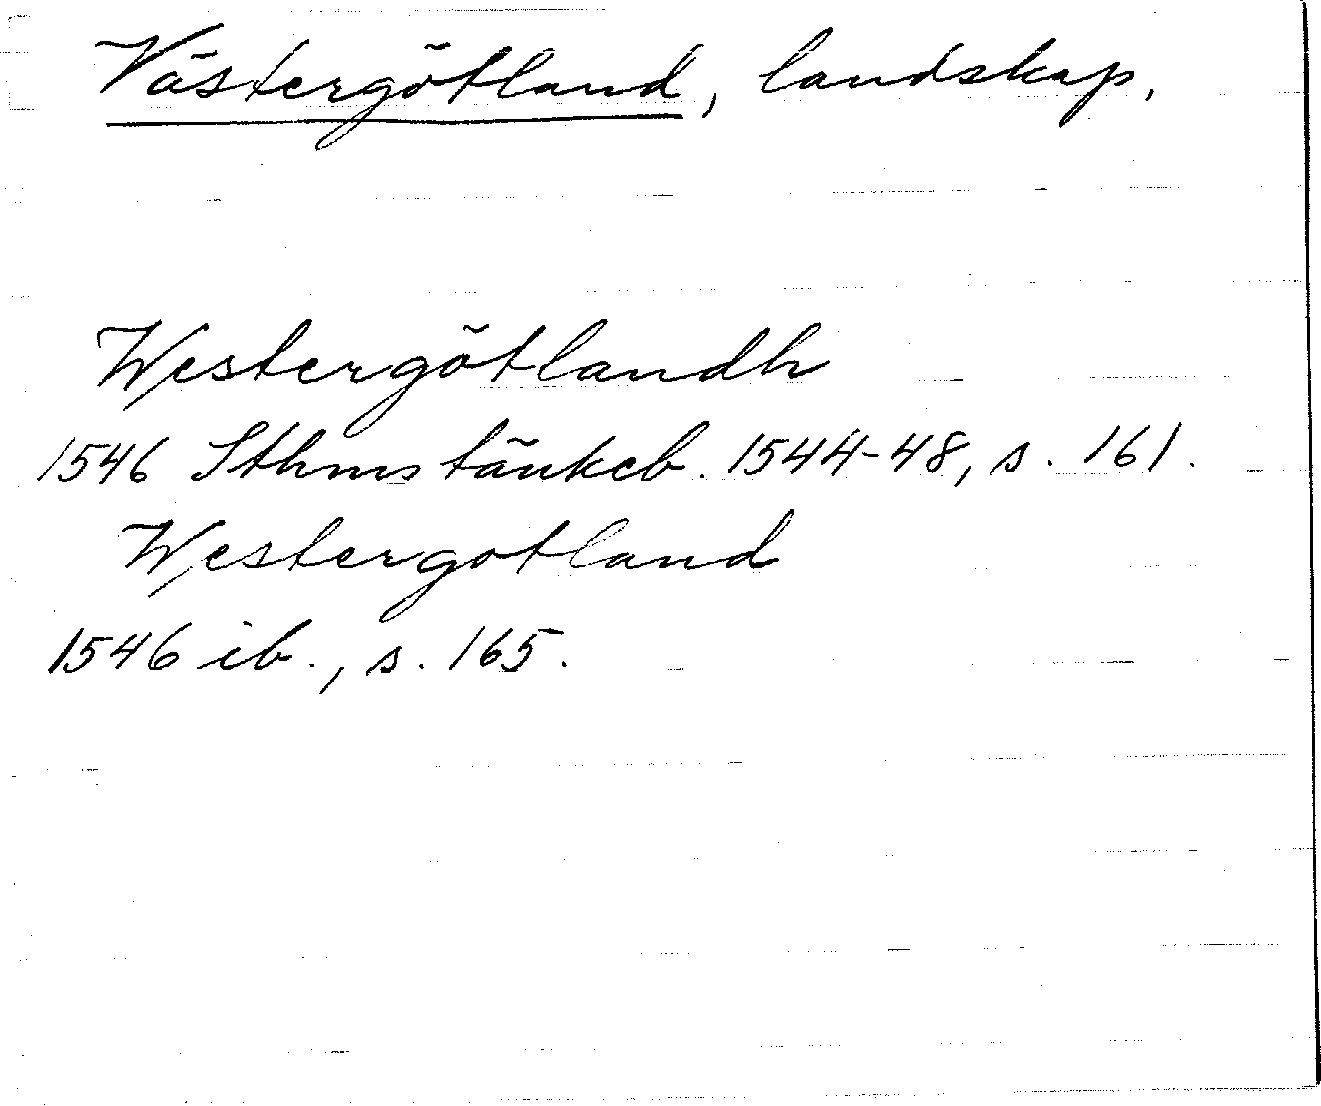 Västergötland, landskap.
Westergötlandh
1546 Sthms tänkeb. 1544-48, s. 161.
Westergotland
1546 ib., s. 165.